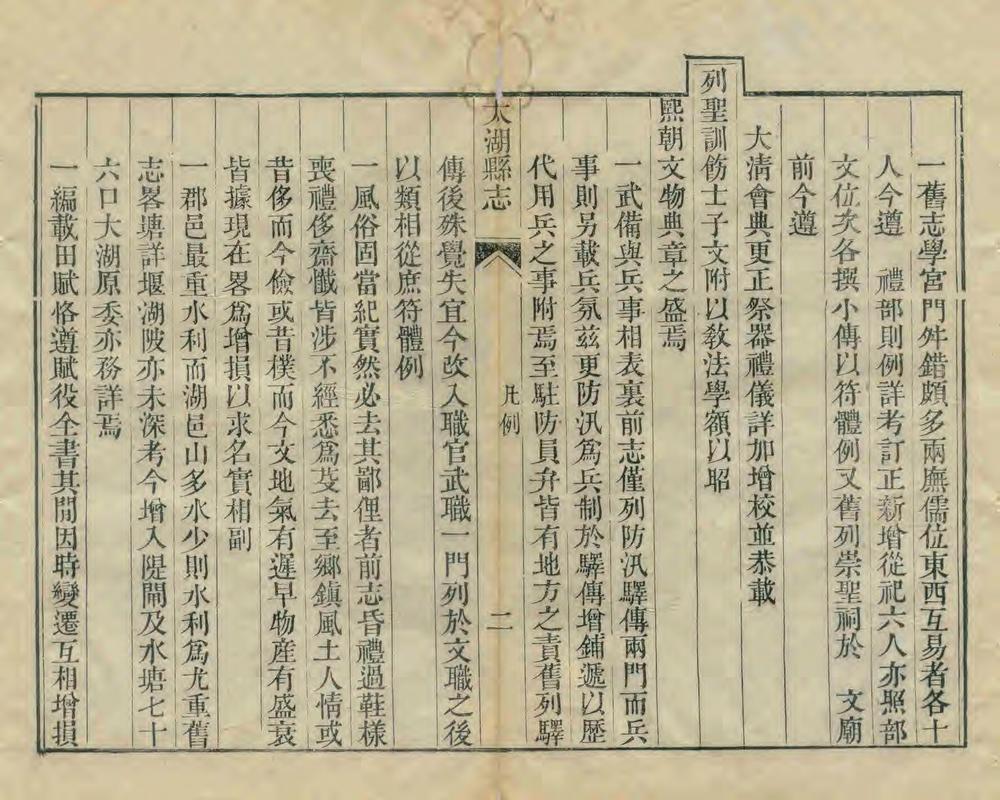 一舊志學宮門舛錯頗多兩廡儒位東西互易者各十
人今遵　禮部則例詳考訂正新增從祀六人亦照部
文位次各撰小傳以符體例又舊列崇聖祠於　文廟
前今遵
大清會典更正祭器禮儀詳加增校並恭載
列聖訓飭士子文附以敎法學額以昭
熙朝文物典章之盛焉
一武備與兵事相表裏前志僅列防汛驛傳兩門而兵
事則另載兵氛茲更防汛爲兵制於驛傳增鋪遞以歷
代用兵之事附焉至駐防員弁皆有地方之責舊列驛
太湖縣志
凡例
二
傳後殊覺失宜今改入職官武職一門列於文職之後
以類相從庶符體例
一風俗固當紀實然必去其鄙俚者前志昏禮過鞋樣
喪禮侈齋懺皆涉不經悉爲芟去至鄉鎭風土人情或
昔侈而今儉或昔樸而今文地氣有遲早物産有盛衰
皆據現在畧爲增損以求名實相副
一郡邑最重水利而湖邑山多水少則水利爲尤重舊
志畧塘詳堰湖陂亦未深考今增入隄閘及水塘七十
六口大湖原委亦務詳焉
一編載田賦恪遵賦役全書其閒因時變遷互相增損